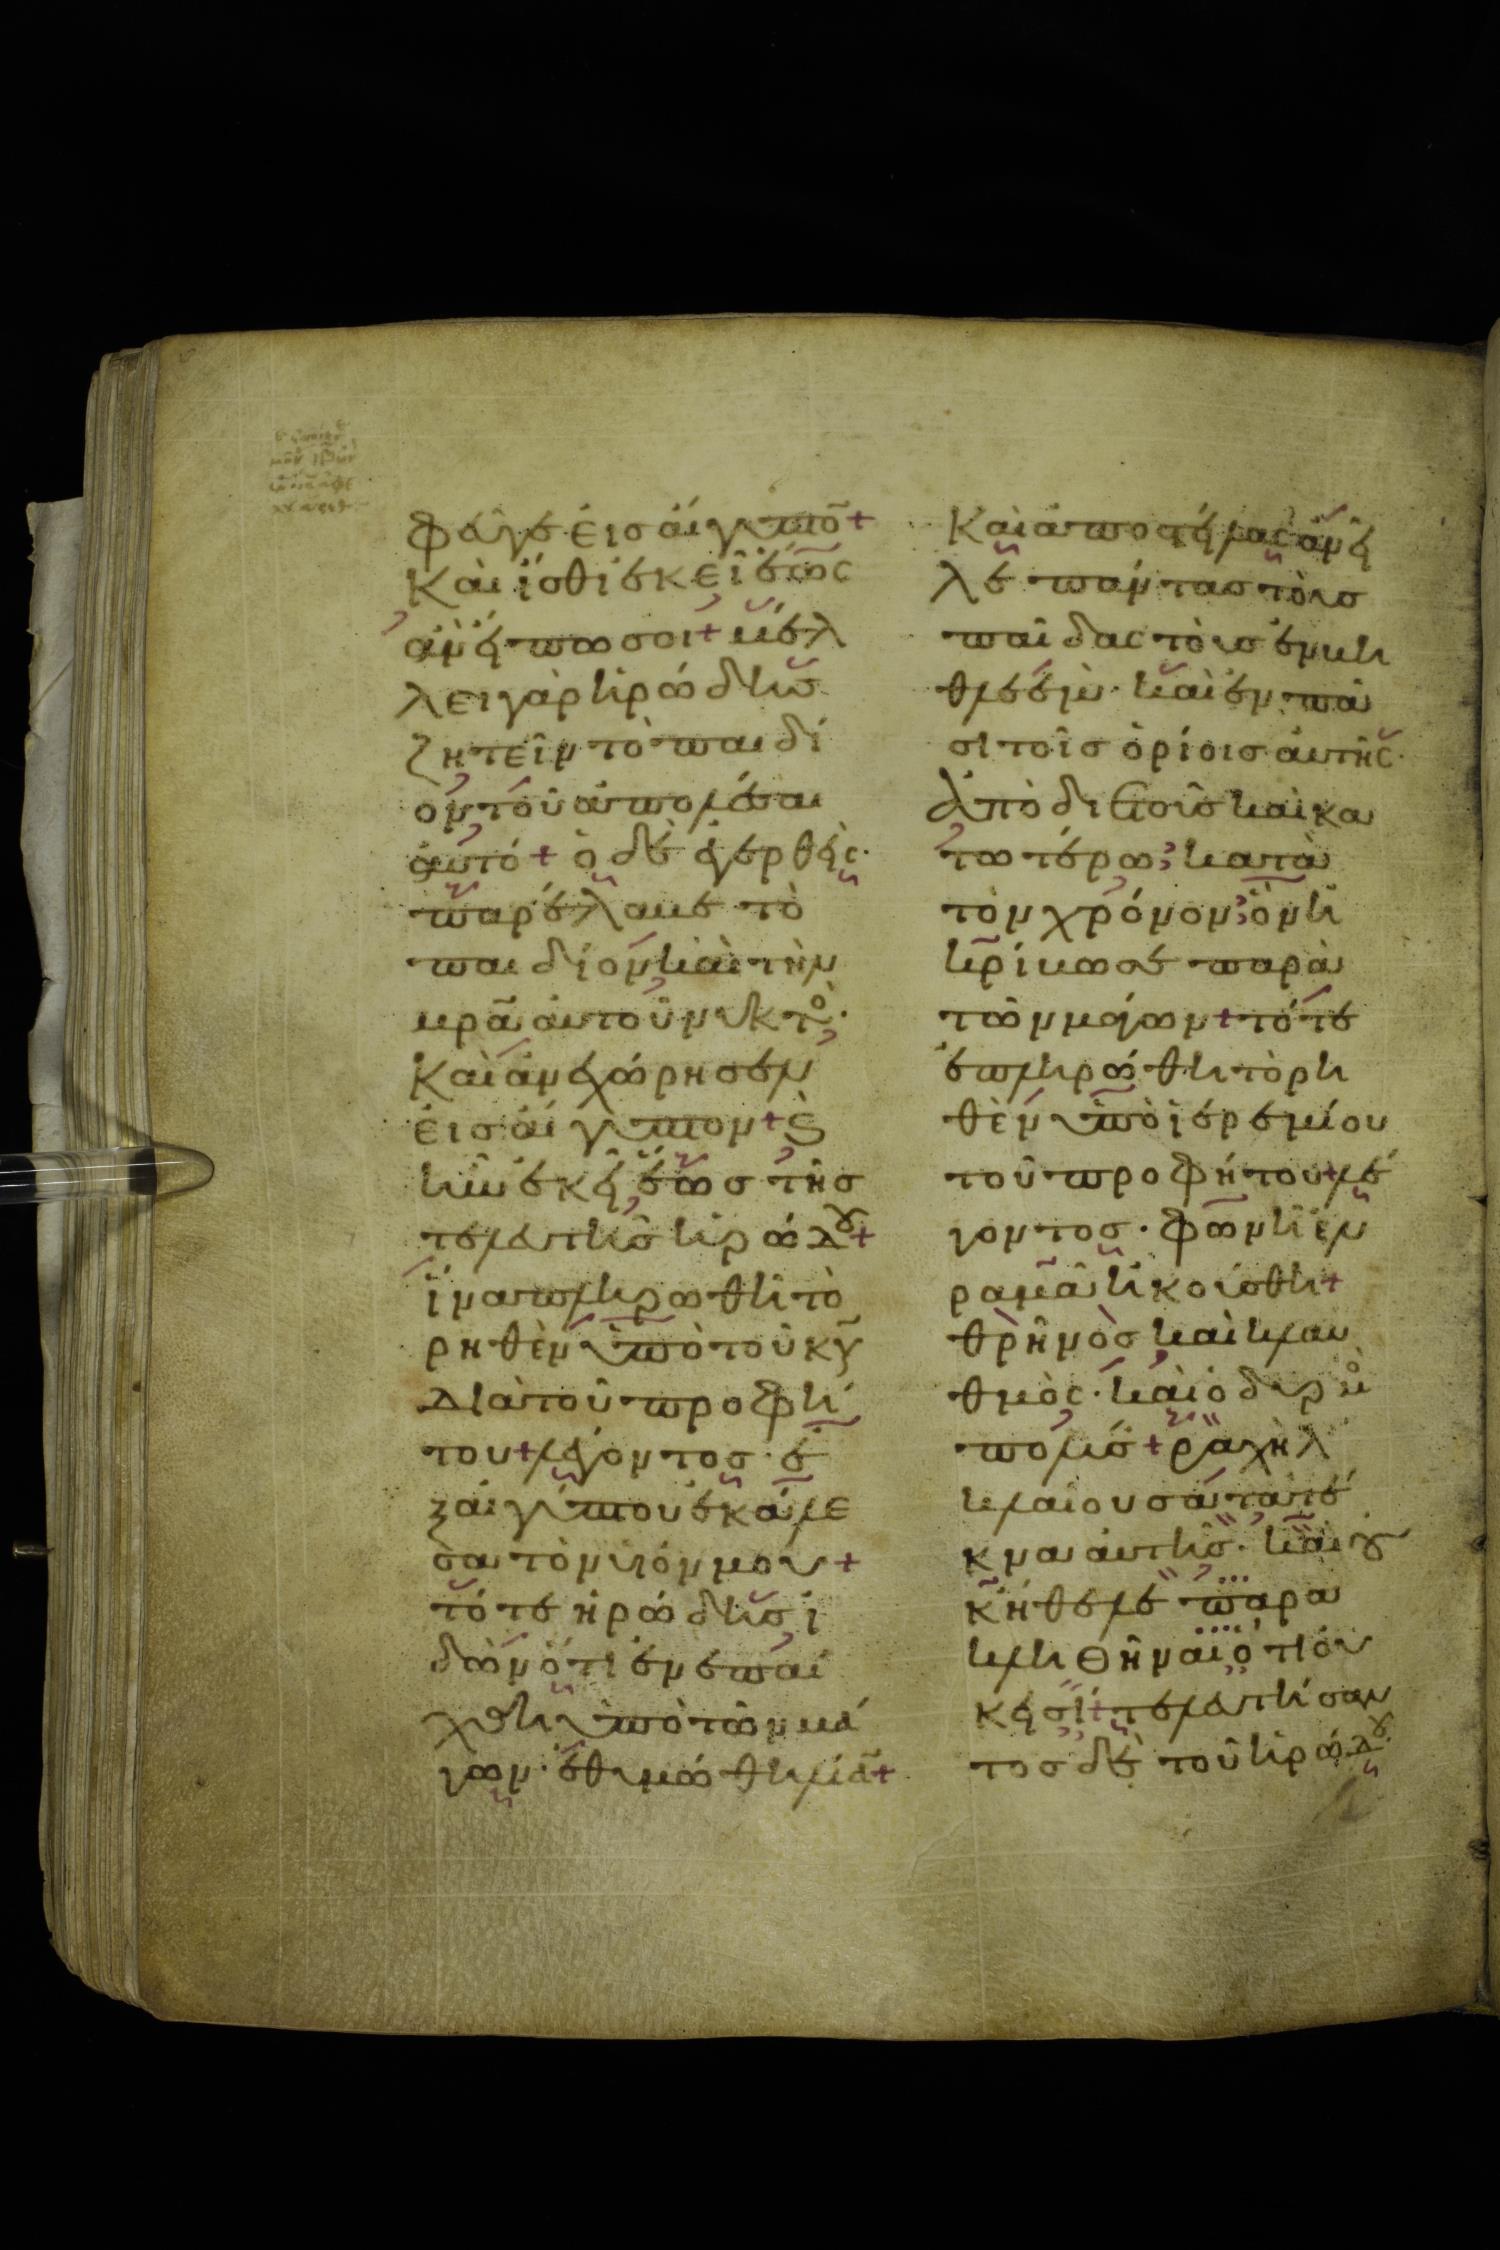 φεῦγε εἰς αἴγυπτο̅+
Καὶ ἴσθι ἐκεῖ ἕως
ἂν εἴπω σοι+ μέλ
λει γὰρ ἡρώδης
ζητεῖν τὸ παιδί
ον τοῦ ἀπολέσαι
αὐτό+ ὁ δὲ ἐγερθεὶς·
παρέλαβε τὸ
παιδίον καὶ τὴν
μρ̅α αὐτοῦ νυκτὸ·
Καὶ ἀνεχώρησεν
εἰς αἴγυπτον+ ϛ̀
ἦν ἐκεῖ ἕως τῆς
τελευτῆς ἡρώδου+
ἵνα πληρωθῆ τὸ
ρηθὲν ὑπὸ τοῦ κυ̅
διὰ τοῦ προφή
του+ λέγοντος· ἐ
ξ αἰγύπτου ἐκάλε
σα τὸν υἱόν μου+
τότε ἡρώδης ἰ
δὼν ὅτι ἐνεπαί
χθη ὑπὸ τῶν μά
γων· ἐθυμώθη λία̅+
Καὶ ἀποστείλας ἀνεῖ
λε πάντας τοὺς
παῖδας τοὺς ἐν βη
θλεὲμ· καὶ ἐν πᾶ
σι τοῖς ὁρίοις αὐτῆς·
ἀπὸ διετοῦς καὶ κα
τωτέρω; κατὰ
τὸν χρόνον; ὃν ἠ
κρίβωσε παρὰ
τῶν μάγων+ τότε
ἐπληρώθη τὸ ρη
θὲν ὑπὸ ἱερεμίου
τοῦ προφήτου+ λέ
γοντος· φωνὴ ἐν
ραμᾶ ἠκούσθη+
θρῆνὸς καὶ κλαυ
θμὸς· καὶ ὀδυρμ
πολύς+ ραχὴλ
κλαίουσα τὰ τέ
κνα αὐτῆς· καὶ οὐ
κ ἤθελε παρα
κληθῆναι ὅτι οὐ
κ εἰσί+ τελευτήσαν
τος δὲ τοῦ ἡρώδου·